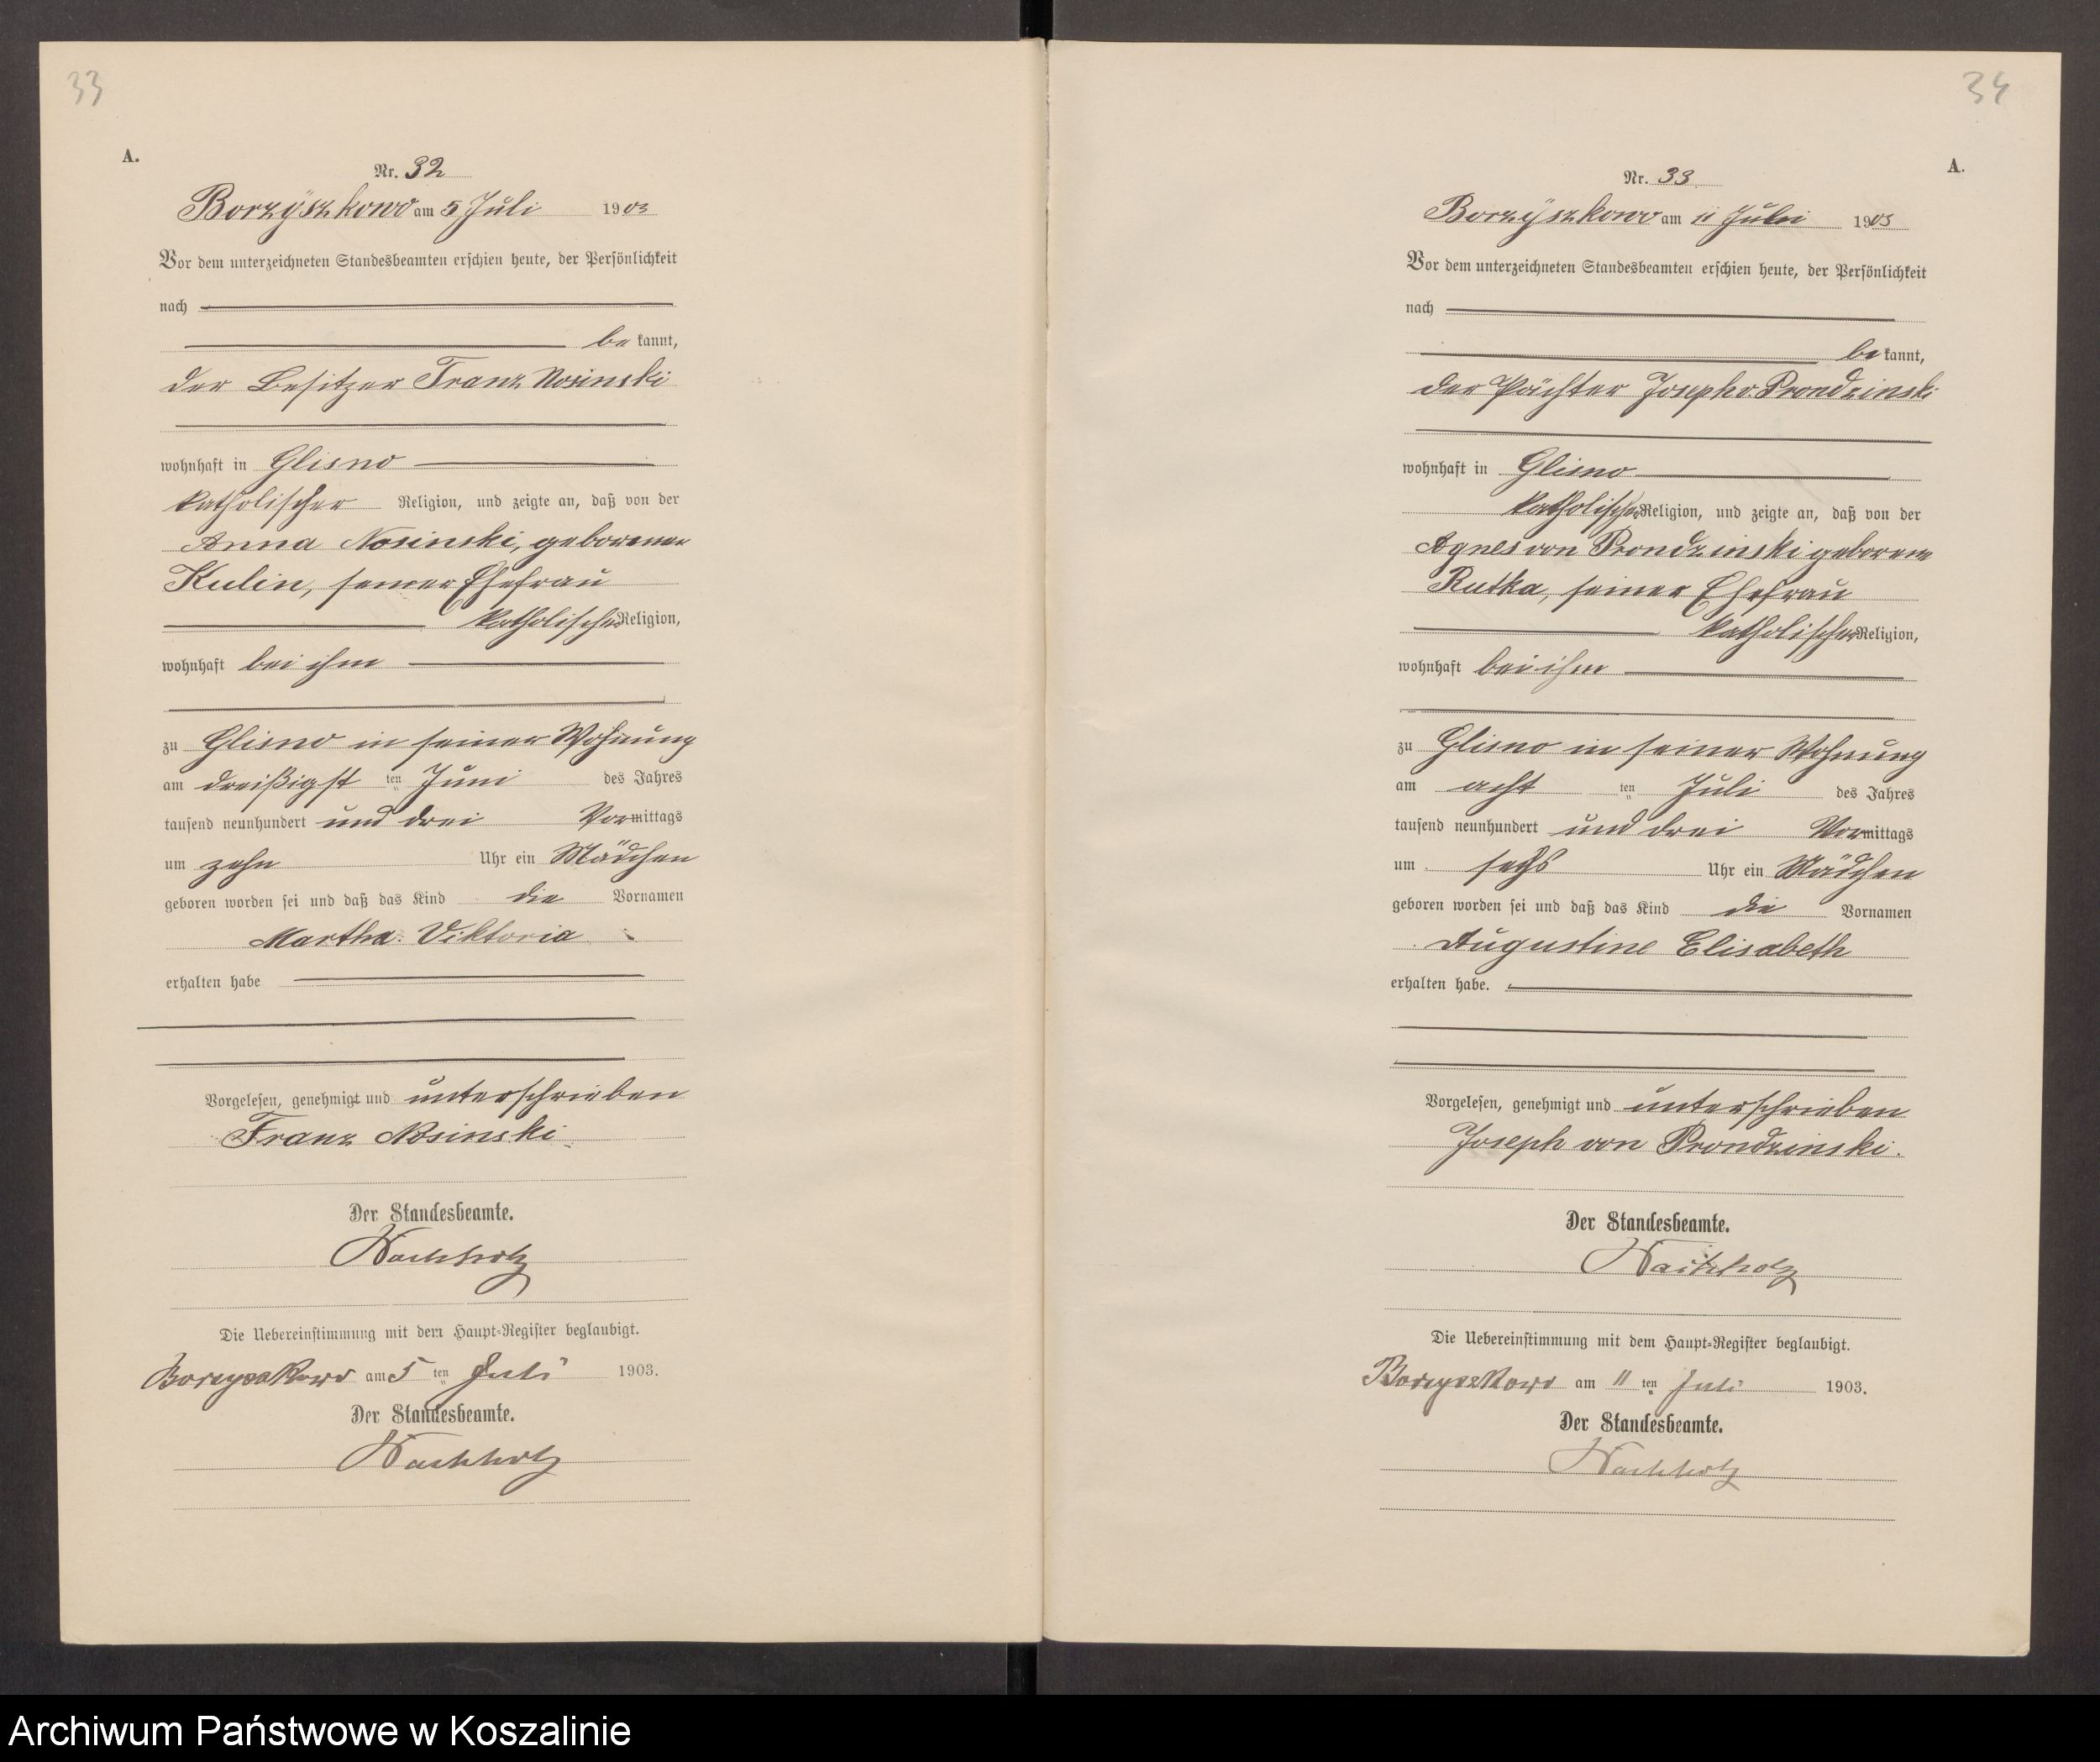 33
A.
Nr. 32
Borzÿszkowo am 5 Juli 1903
Vor dem unterzeichneten Standesbeamten erschien heute, der Persönlichkeit
nach
be kannt,
der Besitzer Franz Nosinski
wohnhaft in Glisno
katholischer Religion, und zeigte an, daß von der
Anna Nosinski, geborenen
Kulin, seiner Ehefrau
katholischer Religion,
wohnhaft bei ihm
zu Glisno in seiner Wohnung
am dreißigst ten Juni des Jahres
tausend neunhundert und drei Vormittags
um zehn Uhr ein Mädchen
geboren worden sei und daß das Kind die Vornamen
Martha Viktoria
erhalten habe
Vorgelesen, genehmigt und unterschrieben
Franz Nosinski
Der Standesbeamte.
Wachholz
Die Uebereinstimmung mit dem Haupt-Register beglaubigt.
Borzyszkowo am 5 ten Juli 1903.
Der Standesbeamte.
Wachholz
34
A.
Nr. 33
Borzÿszkowo am 11 Juli 1903
Vor dem unterzeichneten Standesbeamten erschien heute, der Persönlichkeit
nach
be kannt,
der Pächter Joseph v. Prondzinski
wohnhaft in Glisno
katholischer Religion, und zeigte an, daß von der
Agnes von Prondzinski geborene
Rutka, seiner Ehefrau
katholischer Religion,
wohnhaft bei ihm
zu Glisno in seiner Wohnung
am acht ten Juli des Jahres
tausend neunhundert und drei Vormittags
um sechs Uhr ein Mädchen
geboren worden sei und daß das Kind die Vornamen
Augustine Elisabeth
erhalten habe.
Vorgelesen, genehmigt und unterschrieben
Joseph von Prondzinski.
Der Standesbeamte.
Wachholz
Die Uebereinstimmung mit dem Haupt-Register beglaubigt.
Borzyszkowo am 11 ten Juli 1903.
Der Standesbeamte.
Wachholz
Archiwum Państwowe w Koszalinie